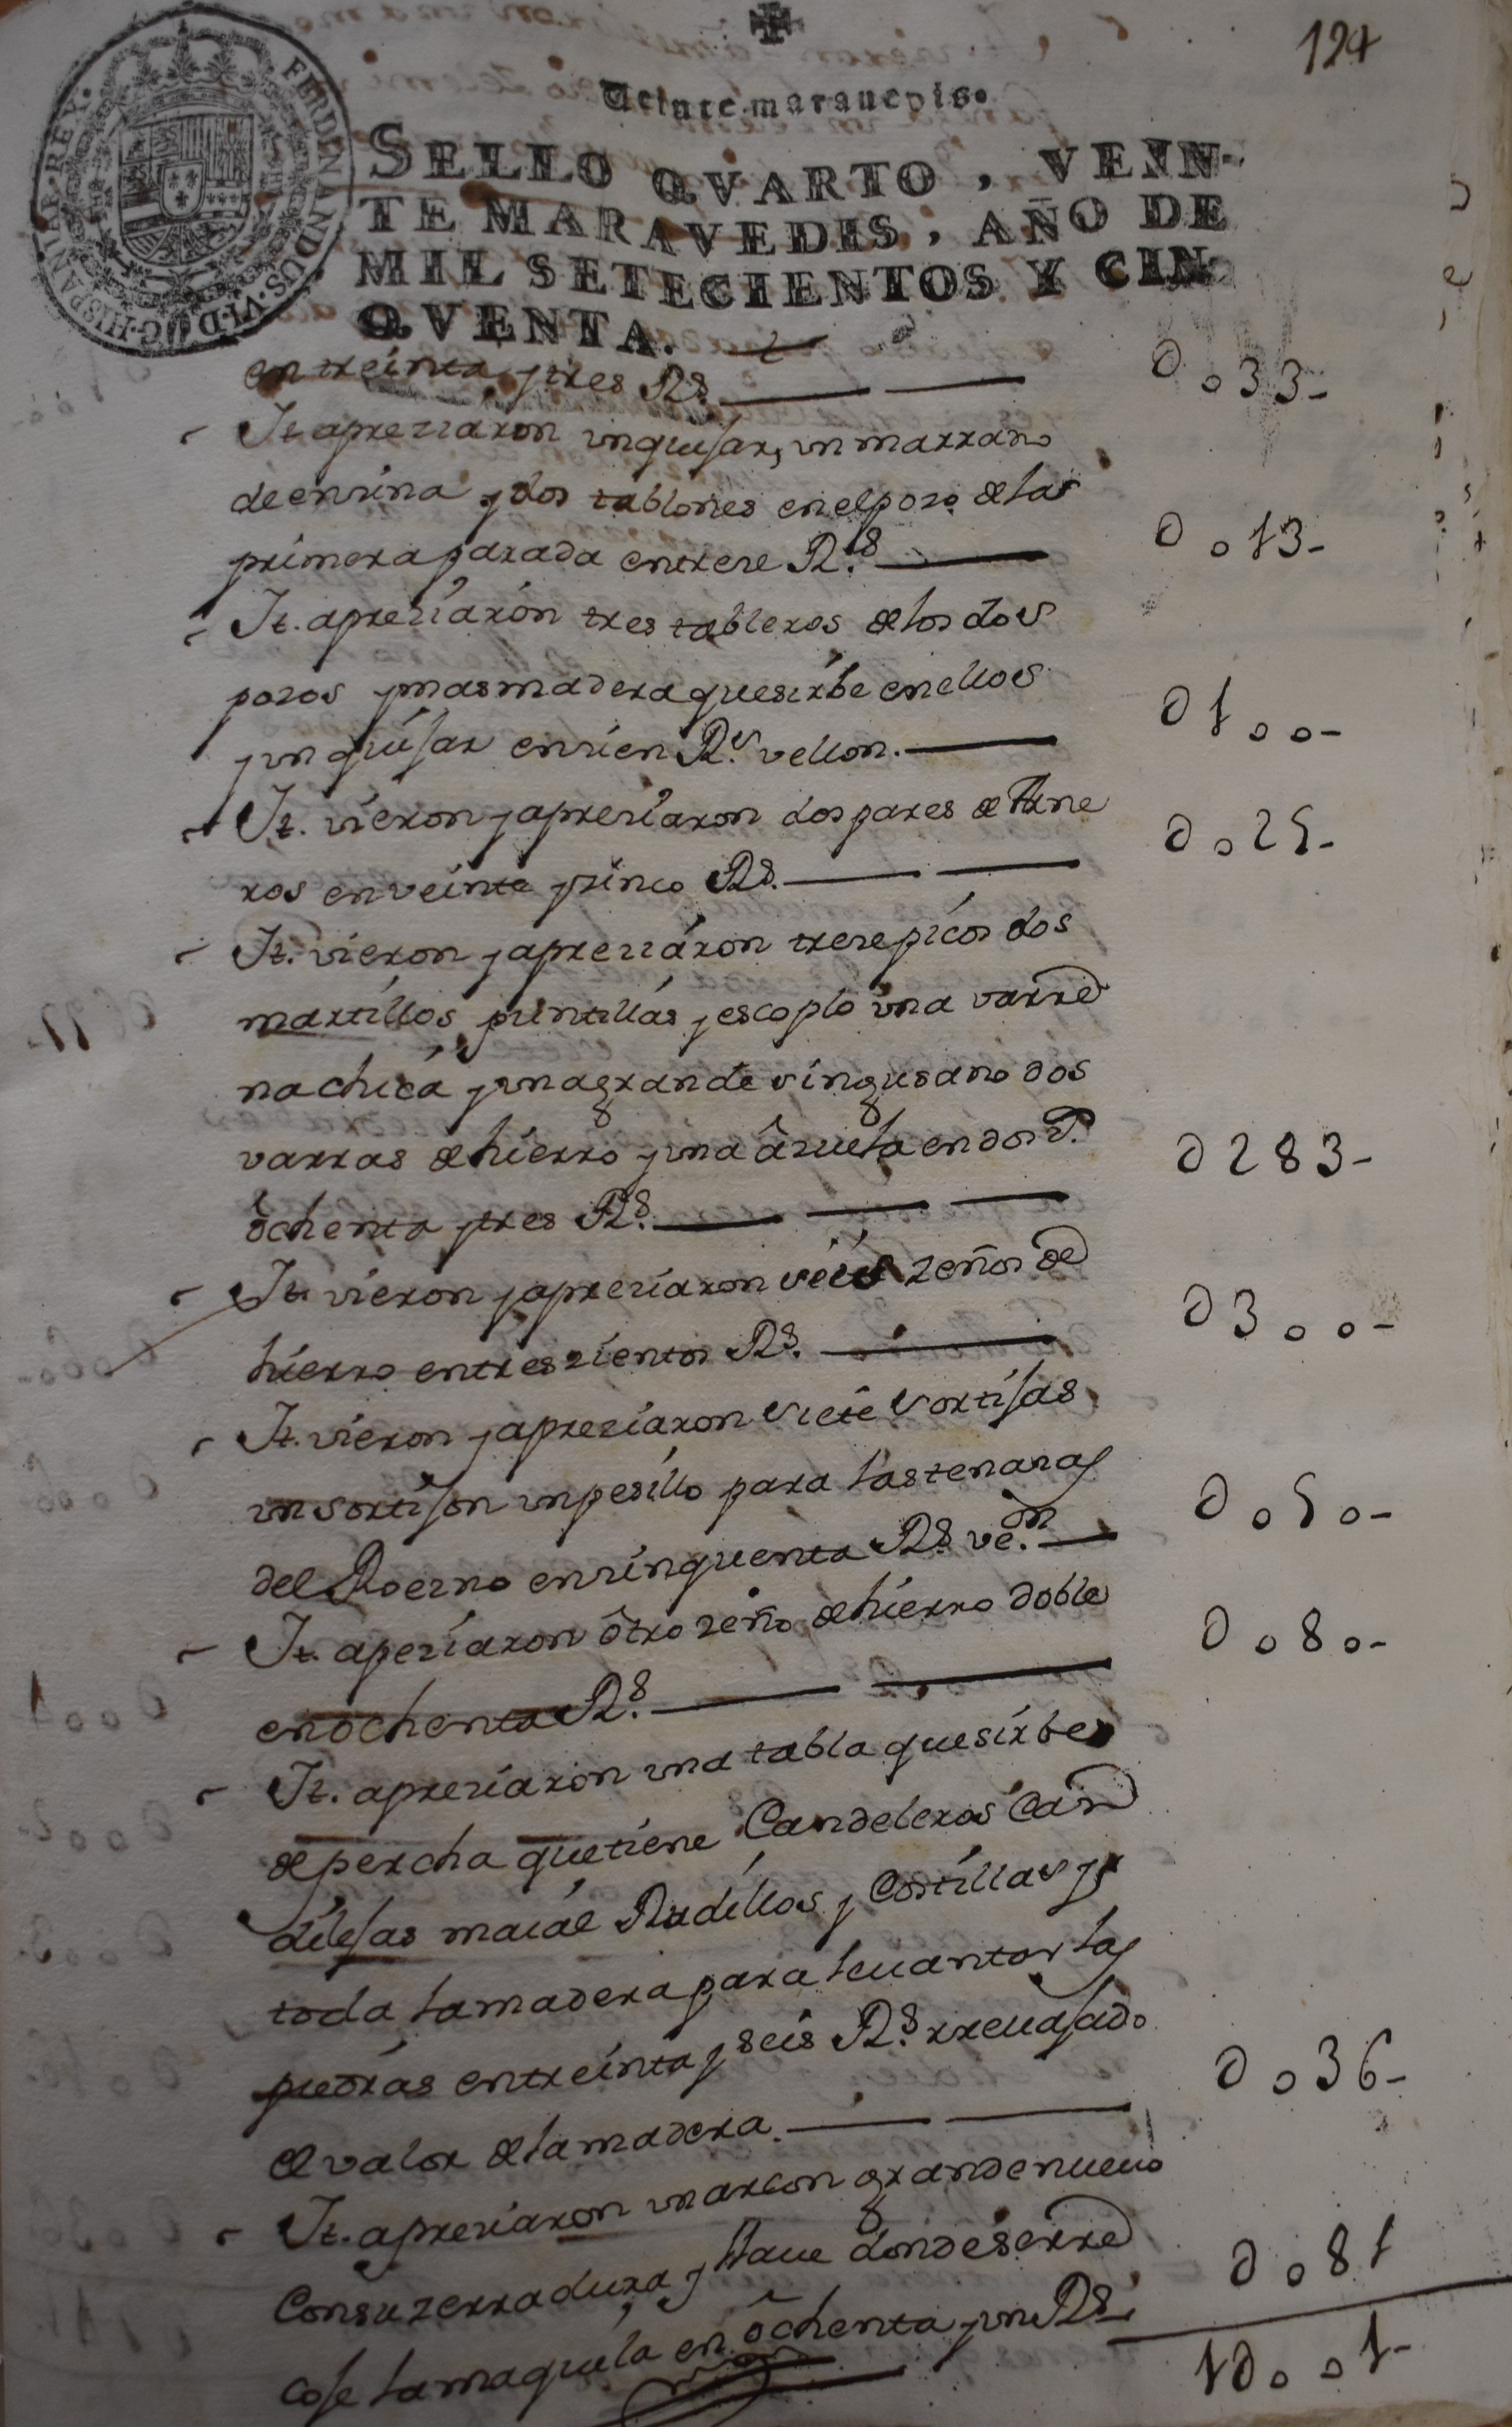 124
Veinte maravedis.
SELLO QVARTO, VEIN-
TE MARAVEDIS, AÑO DE
MIL SETECIENTOS Y CIN-
QVENTA.
FERDINANDUS.VI.D.G.HISPANIAR.REX.
en treinta y tres Rs. 0033-
It apreziaron un quisar, un marrano
de enzina y dos tablones en el pozo de la
primera parada en treze Rs. 0013-
It. apreziaron tres tableros de los dos
pozos y mas madera que sirbe en ellos
y un quisar en zien Rs. vellon. 0100-
It. vieron y apreziaron dos pares de Arne
ros en veinte y zinco Rs. 0025-
It. vieron y apreziaron treze picos dos
martillos puntillas y escoplo una varre
na chica y una grande un gusano dos
varras de hierro y una âzuela en dos z.
ôchenta y tres Rs. 0283-
It. vieron y apreziaron seis zeños de
hierro en tres zientos Rs. 0300-
It. vieron y apreziaron siete sortijas
un sortijon un pesillo para las tenazas
del Roezno en zinquenta Rs. ven. 0050-
It. apeziaron ôtro zeño de hierro doble
en ochenta Rs. 0080-
It. apreziaron una tabla que sirbe
de percha que tiene Candeleros Can
dilejas Rudillos y Costillas y
toda la madera para levantar las
piedras en treinta y seis Rs. rrevajado
el valor de la madera. 0036-
It. apreziaron un arcon grande nuevo
Con su zerradura y llave donde se rre
coje la maquila en ôchenta y un Rs. 0081
10001-